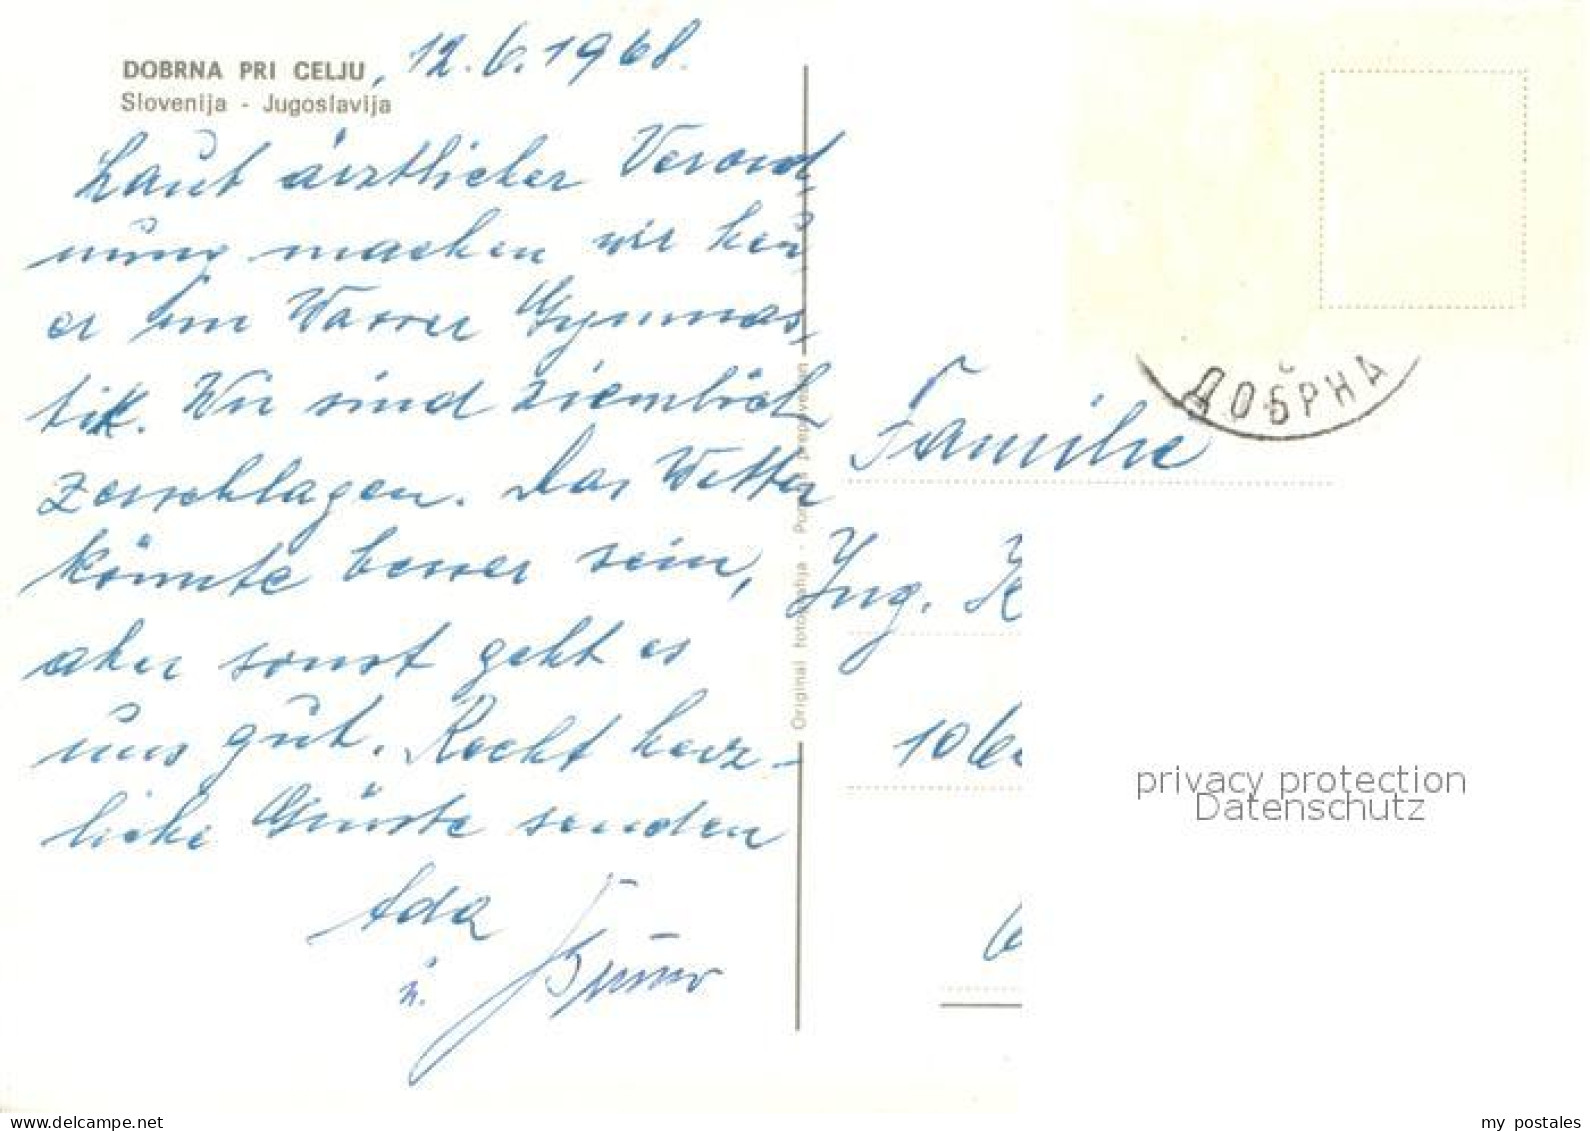 DOBRNA PRI CELJU, 12.6.1968.
Slovenija - Jugoslavija
Laut ärztlicher Verord
nung machen wir heu
er im Wasser Gymnas
tik. Wir sind ziemlich
zerschlagen. Das Wetter
könnte besser sein,
aber sonst geht es
uns gut. Recht herz-
liche Grüsse senden
Ada
u.
Original fotografija -
ДОБРНА
Familie
Ing.
106
privacy protection
Datenschutz
delcampe.net
my_postales